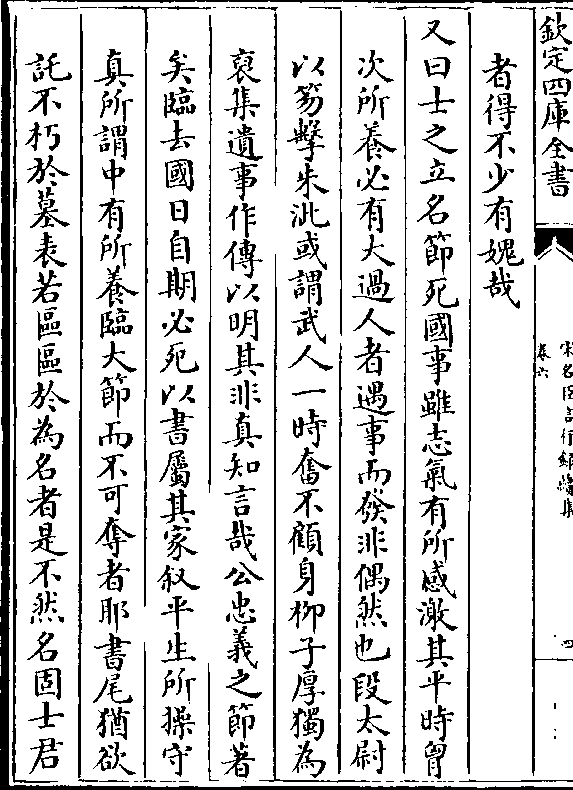 欽定四庫全書
宋名臣言行録續集
卷六
四
者得不少有媿哉
又曰士之立名節死國事雖志氣有所感激其平時胷
次所養必有大過人者遇事而發非偶然也段太尉
以笏擊朱泚或謂武人一時奮不顧身栁子厚獨為
裒集遺事作傳以明其非真知言哉公忠義之節著
矣臨去國日自期必死以書屬其家叙平生所操守
真所謂中有所養臨大節而不可奪者耶書尾猶欲
託不朽於墓表若區區於為名者是不然名固士君